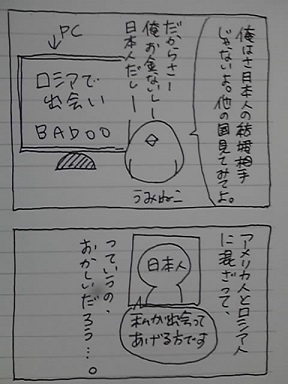 俺はさ日本人の結婚相手
じゃないよ。他の国見てみてよ。
だからさー
俺お金ないしー
日本人だしー
PC
ロシアで
出会い
BADOO
うみねこ
アメリカ人とロシア人
に混ざって、
日本人
私が出会って
あげる方です
っていうの、
おかしいだろう…。